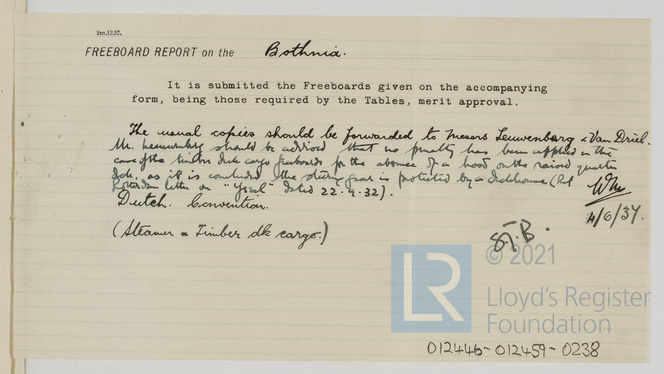 2m,12,37.
FREEBOARD REPORT on the Bothnia.
It is submitted the Freeboards given on the accompanying
form, being those required by the Tables, merit approval.
The usual copies should be forwarded to Messrs Leuwenburg & Van Driel.
Mr. should be advised that no penalty has been applied in the
case of the timber deck cargo freeboards for the absence of a hood on the raised quarter
deck, as it is concluded the steering gear is protected by a deckhouse (
Rotterdam letter on " " dated 22.9.32).
Dutch. Convention.
4/6/37.
(Steamer = Timber dk cargo.)
S.T.B.
© 2021
LR
Lloyd's Register
Foundation
012446-012459-0238